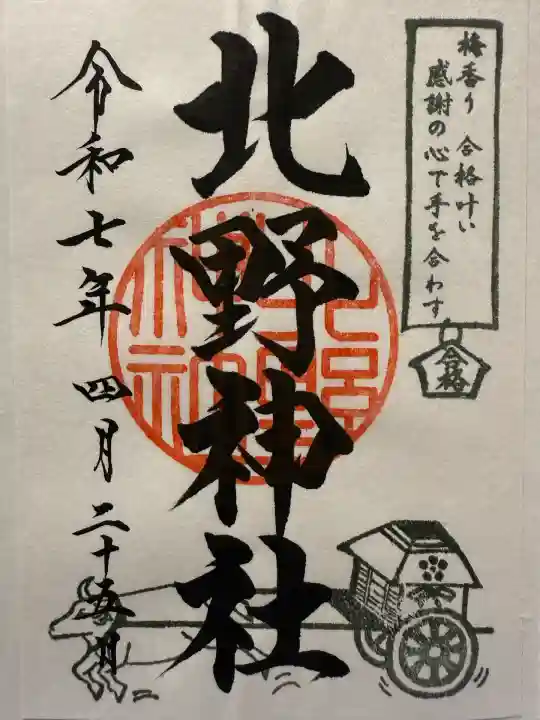 梅香り 合格叶い
感謝の心で手を合わす
合格
北野神社
北野神社
令和七年四月二十五日